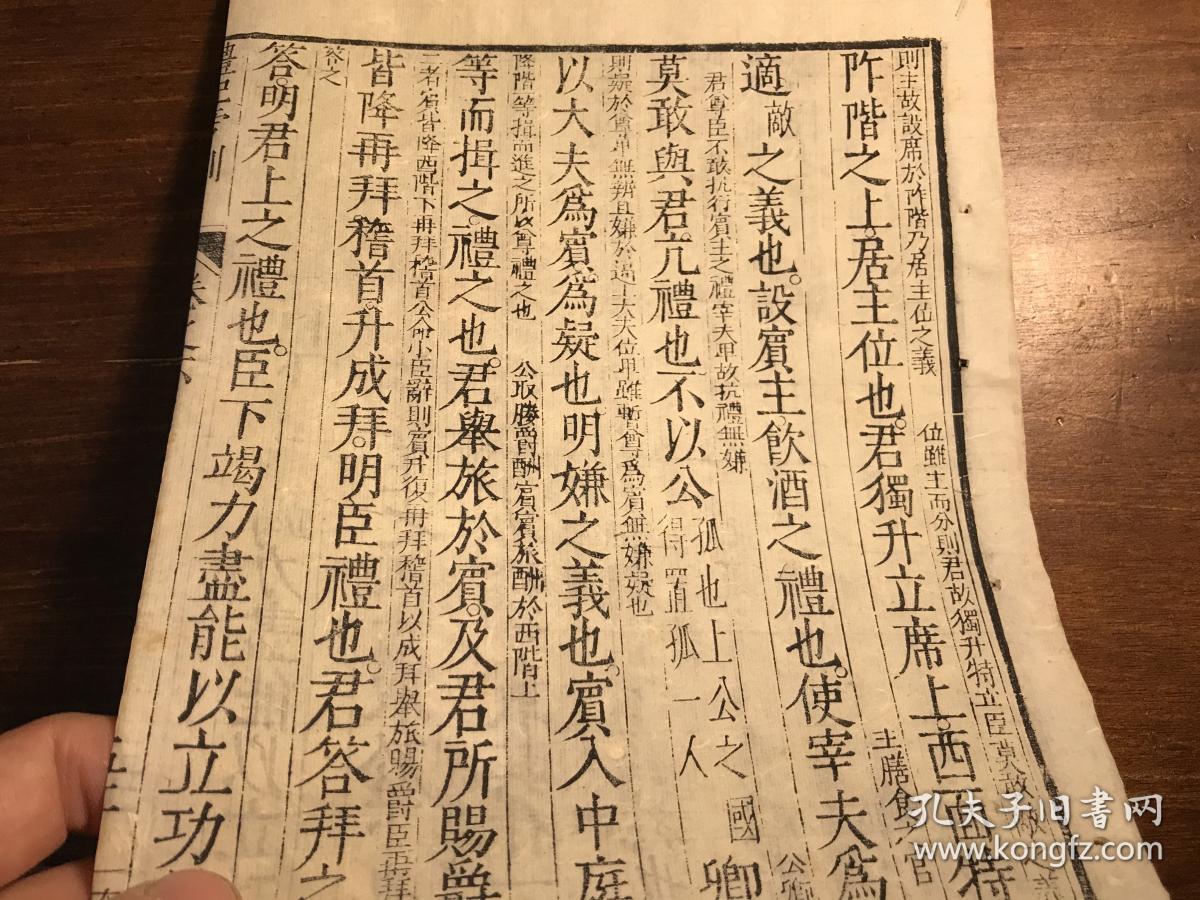 則主故設席於阼階乃居主位之義
位雖主而分則君故獨升特立臣莫敢
阼階之上居主位也君獨升立席上西面特
主膳食之官
適敵之義也設賓主飲酒之禮也使宰夫爲
君尊臣不敢抗行賓主之禮宰夫卑故抗禮無嫌
莫敢與君亢禮也不以公
孤也上公之國
得置孤一人
卿
則疑於尊卑無辨且嫌於逼上大夫位卑雖暫尊爲賓無嫌疑也
以大夫爲賓爲疑也明嫌之義也賓入中庭
降階等揖而進之所以尊禮之也
公取媵爵酬賓賓旅酬於西階上
等而揖之禮之也君舉旅於賓及君所賜爵
二者賓皆降西階下再拜稽首公命小臣辭則賓升復再拜稽首以成拜舉旅賜爵臣再拜
皆降再拜稽首升成拜明臣禮也君答拜之
答之
答明君上之禮也臣下竭力盡能以立功
孔夫子旧書网
kongfz.com